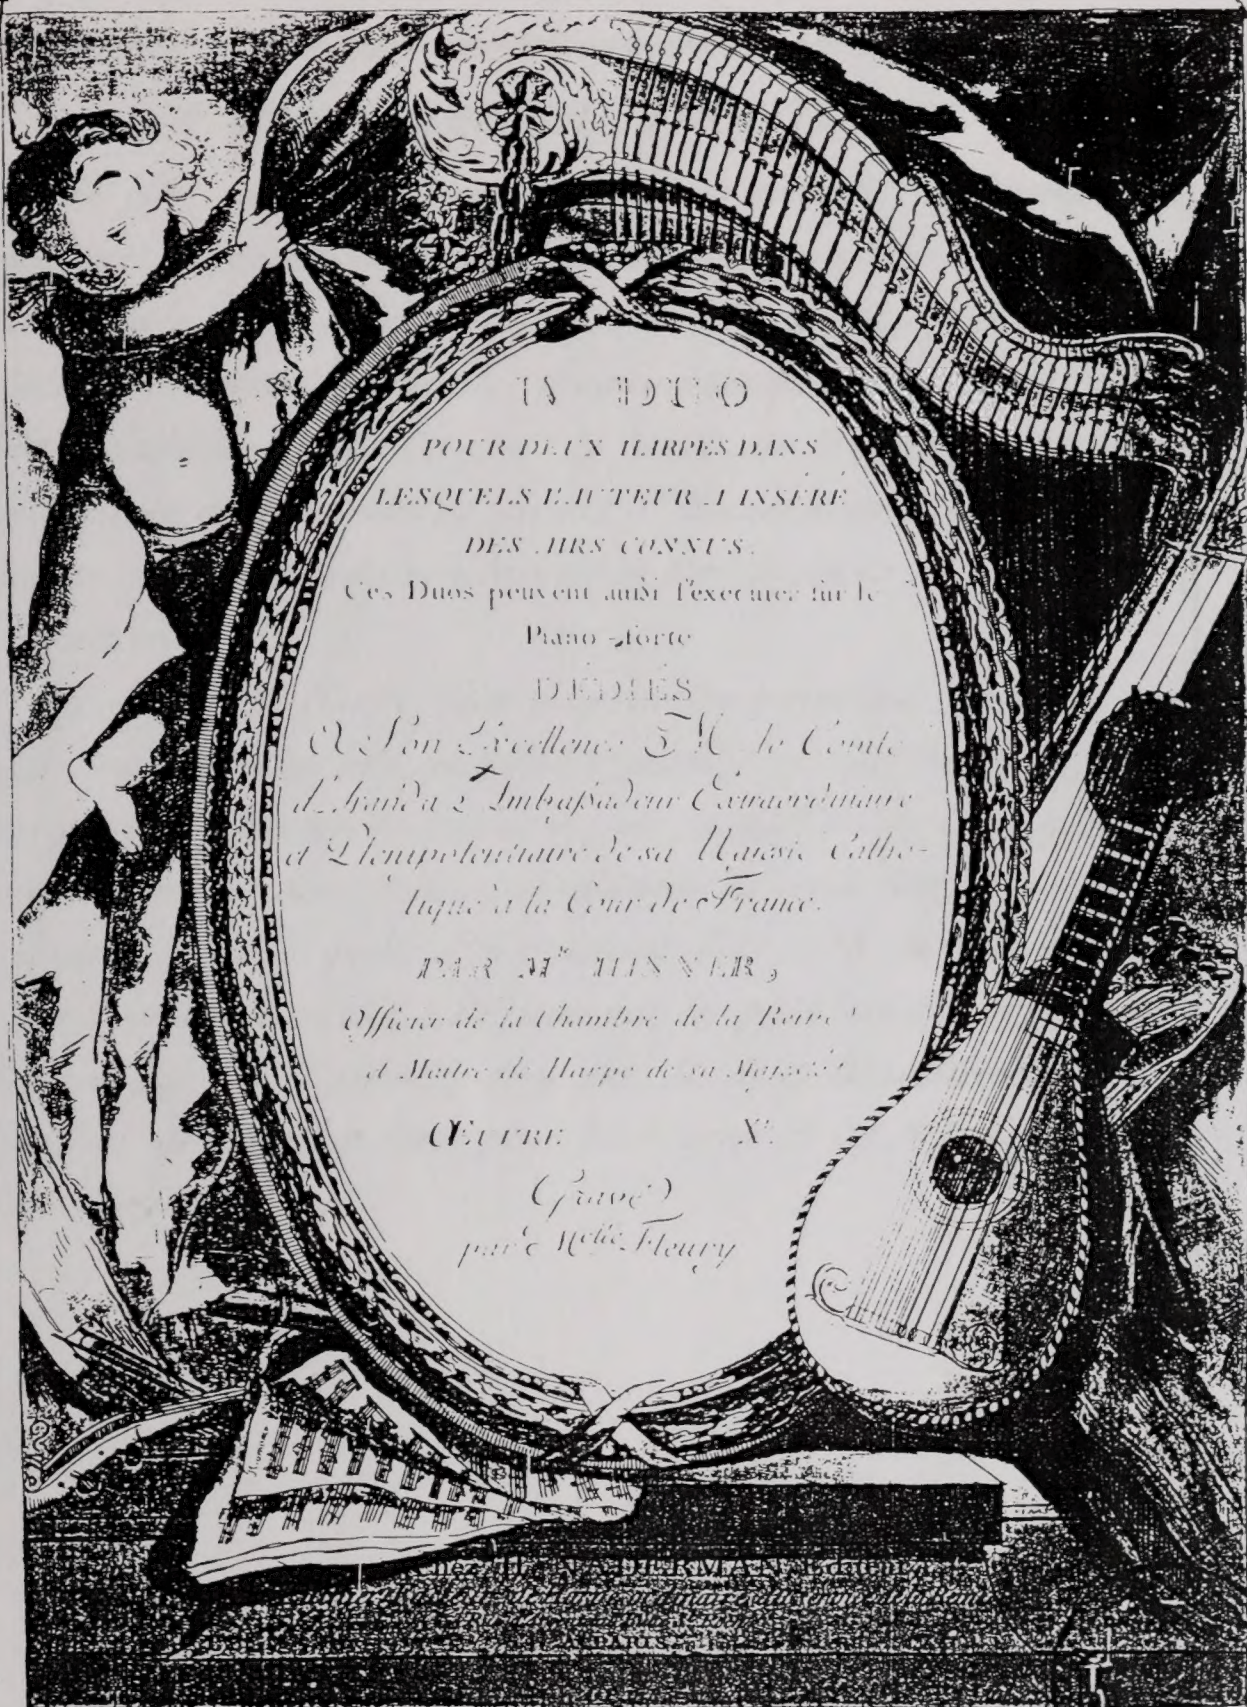 IV DUO
POUR DEUX HARPES DANS
LESQUELS L'AUTEUR A INSÉRÉ
DES AIRS CONNUS.
Ces Duos peuvent aussi s'executer sur le
Piano-forte
DÉDIÉS
A Son Excellence M. le Comte
d'Aranda Ambaßadeur Extraordinaire
et Plenipotentiaire de sa Majesté Catho-
lique à la Cour de France.
PAR Mr. HINNER,
Officier de la Chambre de la Reine
et Maitre de Harpe de sa Majesté
ŒUVRE Xe.
Gravé
par Melle Fleury
Chez H. NADERMAN Editeur
A PARIS